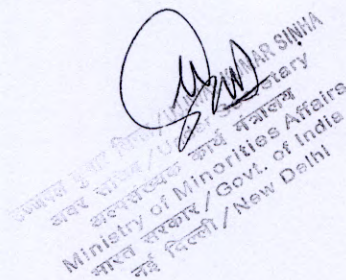 कुमार
SINHA
अवर सचिव / Under Secretary
अल्पसंख्यक कार्य मंत्रालय
Ministry of Minorities Affairs
भारत सरकार / Govt. of India
नई दिल्ली / New Delhi